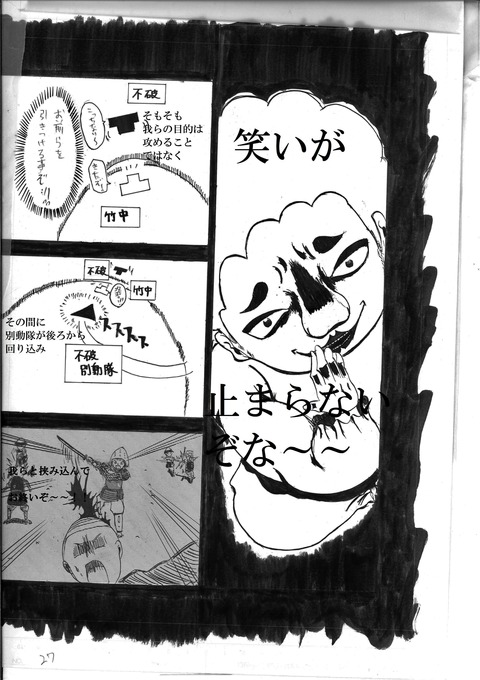 笑いが
止まらない
ぞな～～
不破
そもそも
我らの目的は
攻めること
ではなく
お前らを
引きつける事ぞ
竹中
不破
竹中
その間に
別動隊が後ろから
回り込み
ススススス
不破
別動隊
我らを挟み込んで
お終いぞ～～！
27